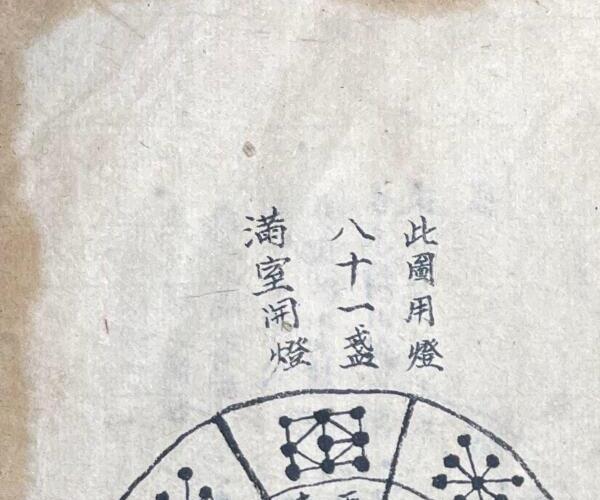 此圖用燈
八十一盞
滿室開燈